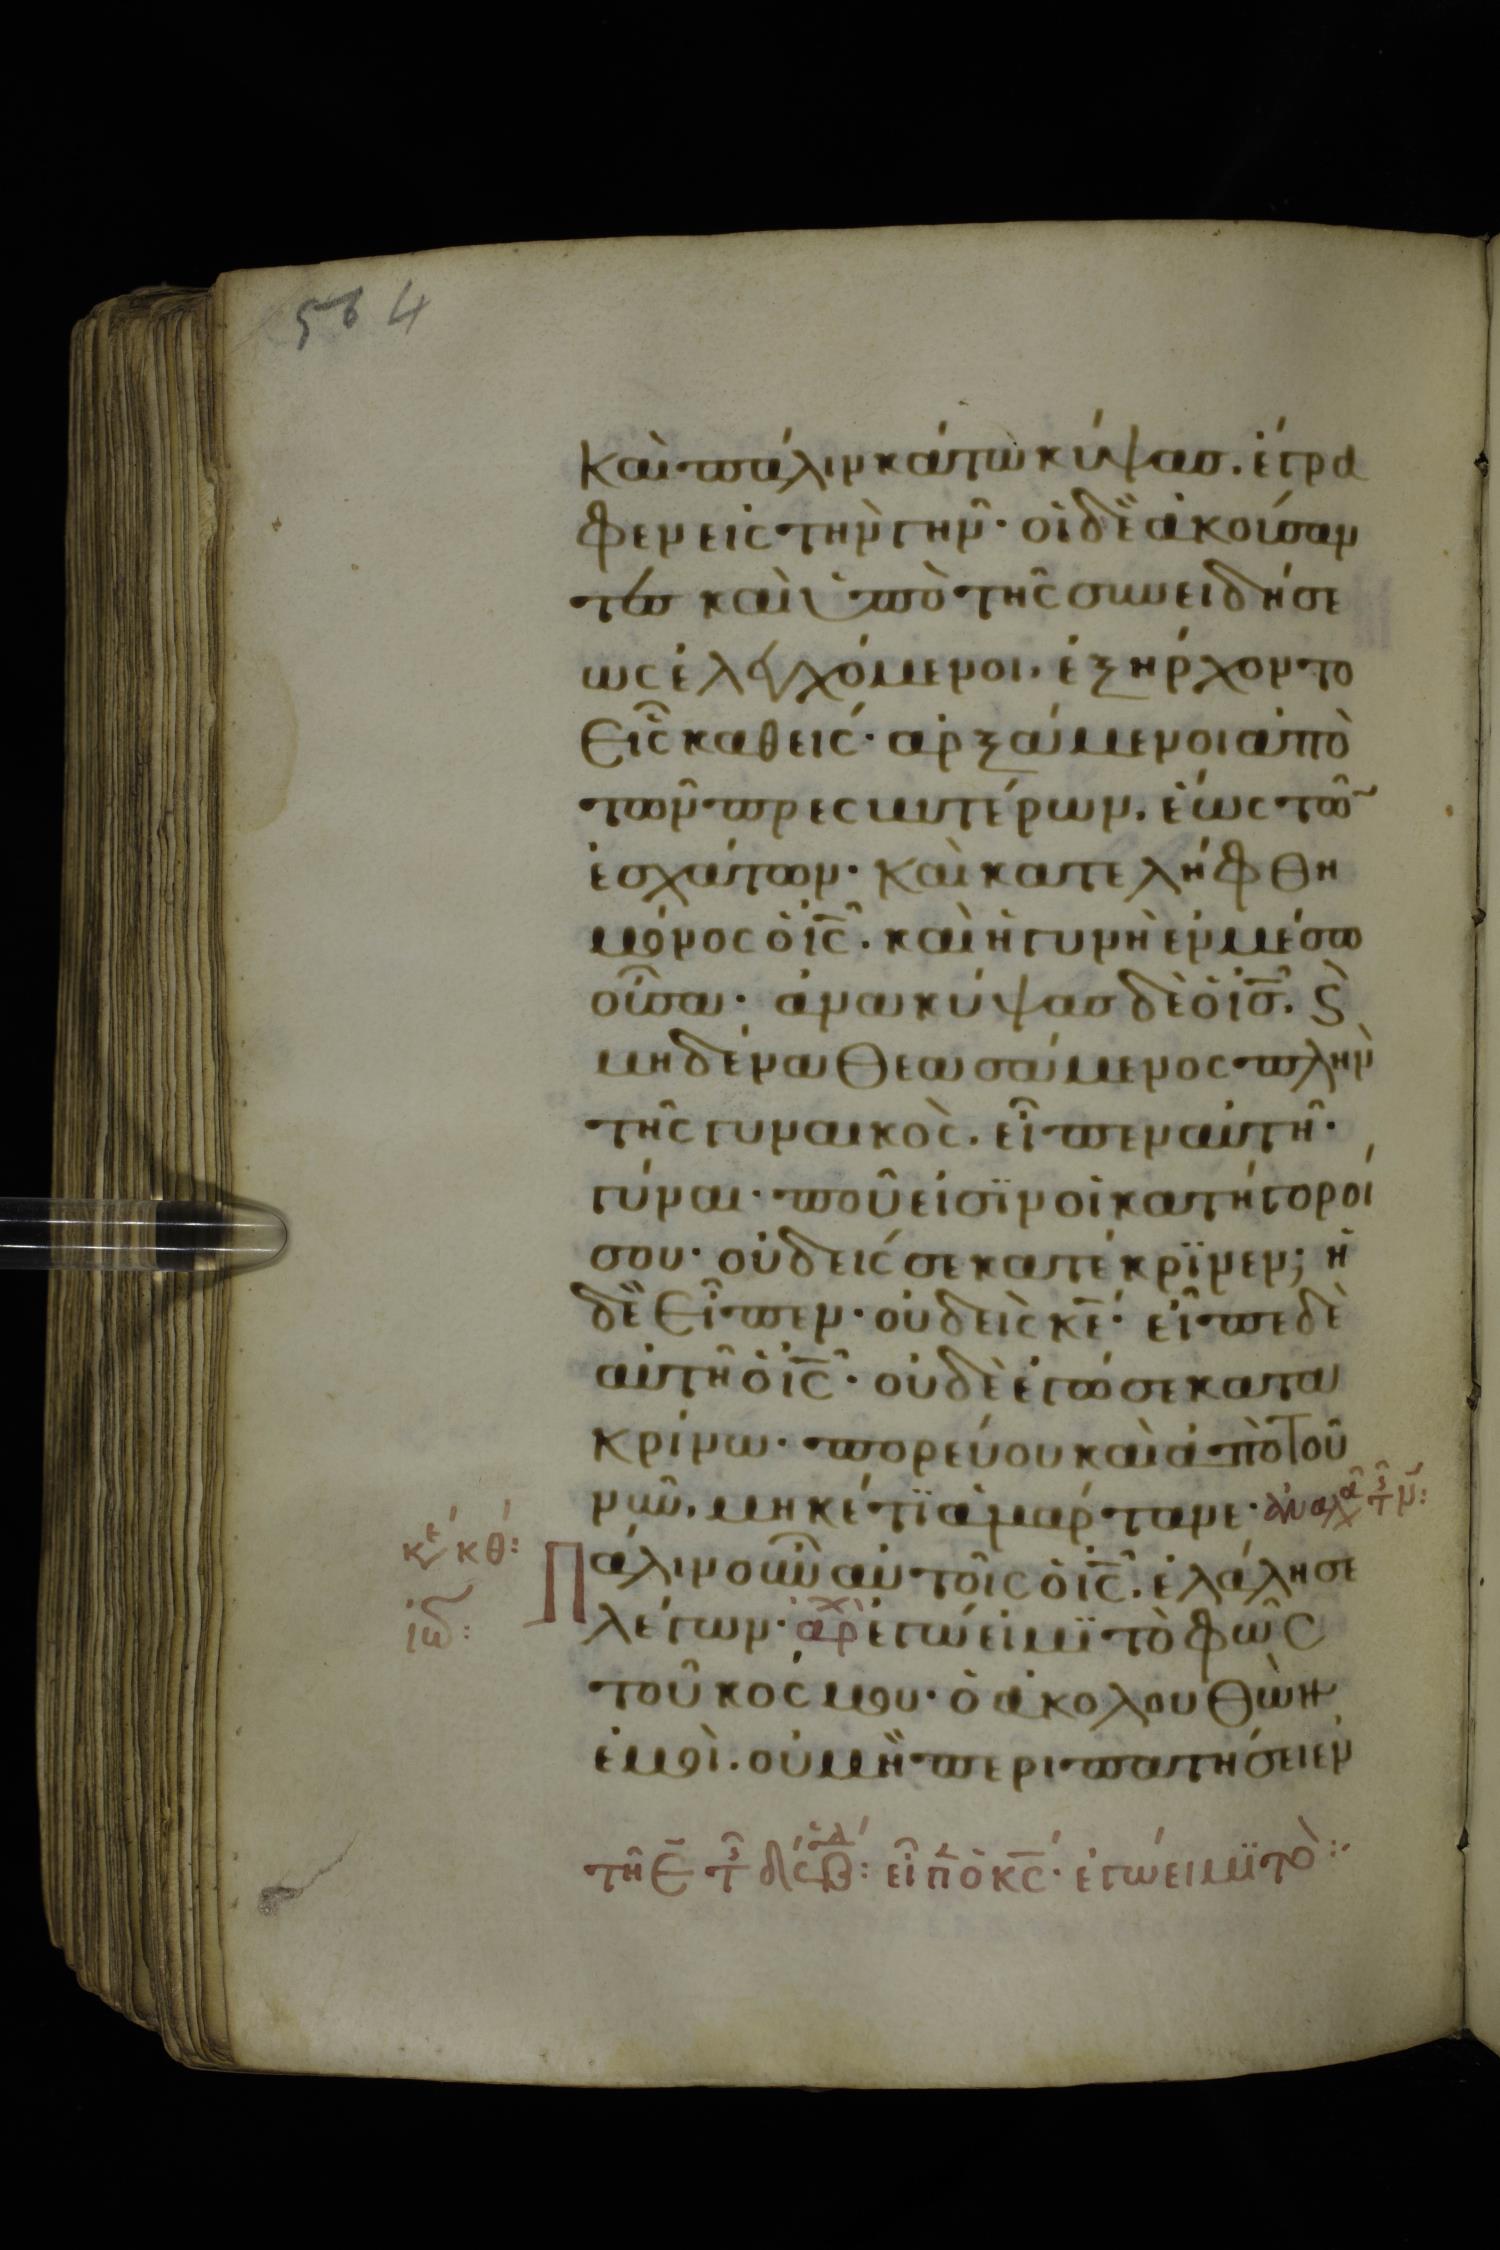 564
καὶ πάλιν κάτω κύψας. ἔγρα
φεν εἰς τὴν γῆν· οἱ δὲ ἀκούσαν
τες καὶ ὑπὸ τῆς συνειδήσε
ως ἐλεγχόμενοι. ἐξήρχοντο
εἷς καθεῖς· ἀρξάμενοι ἀπὸ
τῶν πρεσβυτέρων. ἕως τῶ̅
ἐσχάτων· καὶ κατελήφθη
μόνος ὁ ις̅. καὶ ἡ γυνὴ ἐν μέσω
οὖσα· ἀνακύψας δὲ ὁ ισ̅. ϗ
μηδένα θεασάμενος πλὴν
τῆς γυναικὸς. εἶπεν αὐτῆ·
γύναι· ποῦ εἰσϊν οἱ κατήγοροί
σου· οὐδείς σε κατέκρϊνεν; ἡ
δὲ εἶπεν· οὐδεὶς κε̅· εἶπε δὲ
αὐτῆ ὁ ις̅· οὐδὲ ἐγώ σε κατα
κρίνω· πορεύου καὶ ἀπὸ τοῦ
νῦν. μηκέτϊ ἁμάρτανε·
κθ:
Πάλιν οὖν αὐτοῖς ὁ ις̅. ἐλάλησε
ιω:
λέγων· ἀρχ ἐγώ εἰμϊ τὸ φῶς
τοῦ κόσμου· ὁ ἀκολουθῶν
ἐμοὶ. οὐ μὴ περιπατήσει ἐν
τῆ ε̅ εἶπ ὁ κς̅· ἐγώ εἰμϊ τὸ: